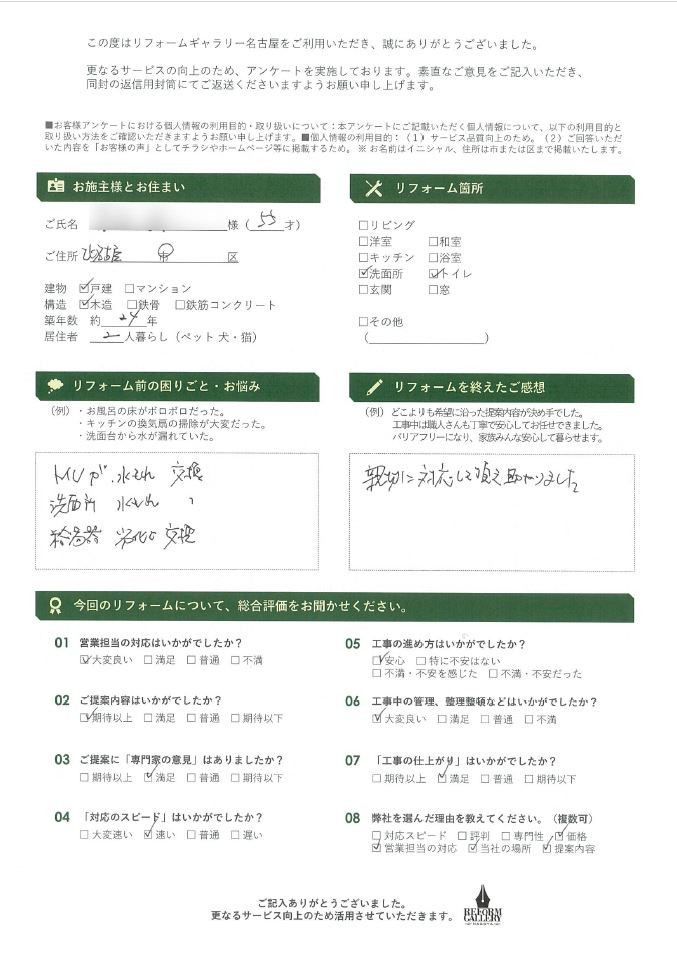 この度はリフォームギャラリー名古屋をご利用いただき、誠にありがとうございました。
更なるサービスの向上のため、アンケートを実施しております。素直なご意見をご記入いただき、
同封の返信用封筒にてご返送くださいますようお願い申し上げます。
■お客様アンケートにおける個人情報の利用目的・取り扱いについて：本アンケートにご記載いただく個人情報について、以下の利用目的と
取り扱い方法をご確認いただきますようお願い申し上げます。■個人情報の利用目的：（1）サービス品質向上のため。（2）ご回答いただ
いた内容を「お客様の声」としてチラシやホームページ等に掲載するため。※ お名前はイニシャル、住所は市または区まで掲載いたします。
お施主様とお住まい
ご氏名 様（55才）
ご住所 名古屋 市 区
建物 ☑戸建 □マンション
構造 ☑木造 □鉄骨 □鉄筋コンクリート
築年数 約 24 年
居住者 二 人暮らし（ペット 犬・猫）
リフォーム箇所
□リビング
□洋室 □和室
□キッチン □浴室
☑洗面所 ☑トイレ
□玄関 □窓
□その他
（ ）
リフォーム前の困りごと・お悩み
（例）・お風呂の床がボロボロだった。
・キッチンの換気扇の掃除が大変だった。
・洗面台から水が漏れていた。
トイレが 水もれ 交換
洗面所 水もれ 〃
給湯器 劣化の 交換
リフォームを終えたご感想
（例）どこよりも希望に沿った提案内容が決め手でした。
工事中は職人さんも丁寧で安心してお任せできました。
バリアフリーになり、家族みんな安心して暮らせます。
親切に対応して頂き助かりました
今回のリフォームについて、総合評価をお聞かせください。
01 営業担当の対応はいかがでしたか？
☑大変良い □満足 □普通 □不満
02 ご提案内容はいかがでしたか？
☑期待以上 □満足 □普通 □期待以下
03 ご提案に「専門家の意見」はありましたか？
□期待以上 ☑満足 □普通 □期待以下
04 「対応のスピード」はいかがでしたか？
□大変速い ☑速い □普通 □遅い
05 工事の進め方はいかがでしたか？
☑安心 □特に不安はない
□不満・不安を感じた □不満・不安だった
06 工事中の管理、整理整頓などはいかがでしたか？
☑大変良い □満足 □普通 □不満
07 「工事の仕上がり」はいかがでしたか？
□期待以上 ☑満足 □普通 □期待以下
08 弊社を選んだ理由を教えてください。（複数可）
□対応スピード □評判 □専門性 ☑価格
☑営業担当の対応 ☑当社の場所 ☑提案内容
ご記入ありがとうございました。
更なるサービス向上のため活用させていただきます。
REFORM
GALLERY
NAGOYA